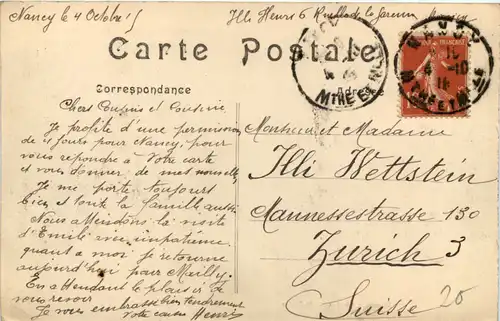 Nancy le 4 Octobre 15
Illi Henri 6 Nancy
Carte Postale
Correspondance
Adresse
NANCY
Mthe ET Mlle
Chers Cousins et Cousine
Je profite d'une permission
de 4 jours pour Nancy, pour
vous repondre a Votre carte
et vous donner de mes nouvelles
Je me porte toujours
bien et toute la famille aussi
Nous attendons la visite
d'Emile avec impatience
quant a moi je retourne
aujourd'hui pour Mailly.
En attendant le plaisir de
vous revoir
Je vous embrasse bien tendrement
Votre cousin Henri
Monsieur et Madame
Illi Wettstein
Mannessestrasse 130
Zurich 3
Suisse
20